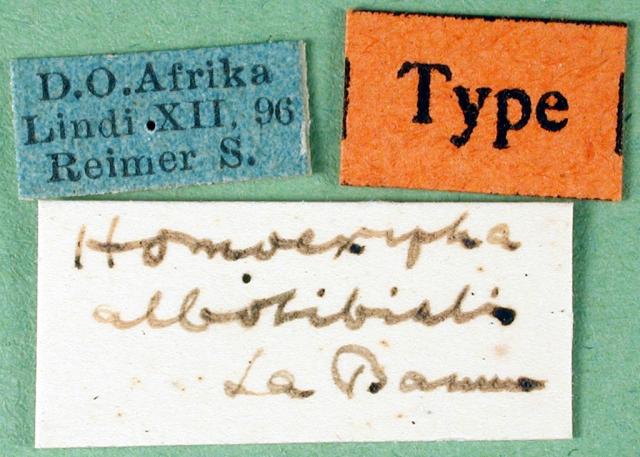 D.O.Afrika
Lindi XII. 96
Reimer S.
Type
Homoexipha
albotibialis
La Baume